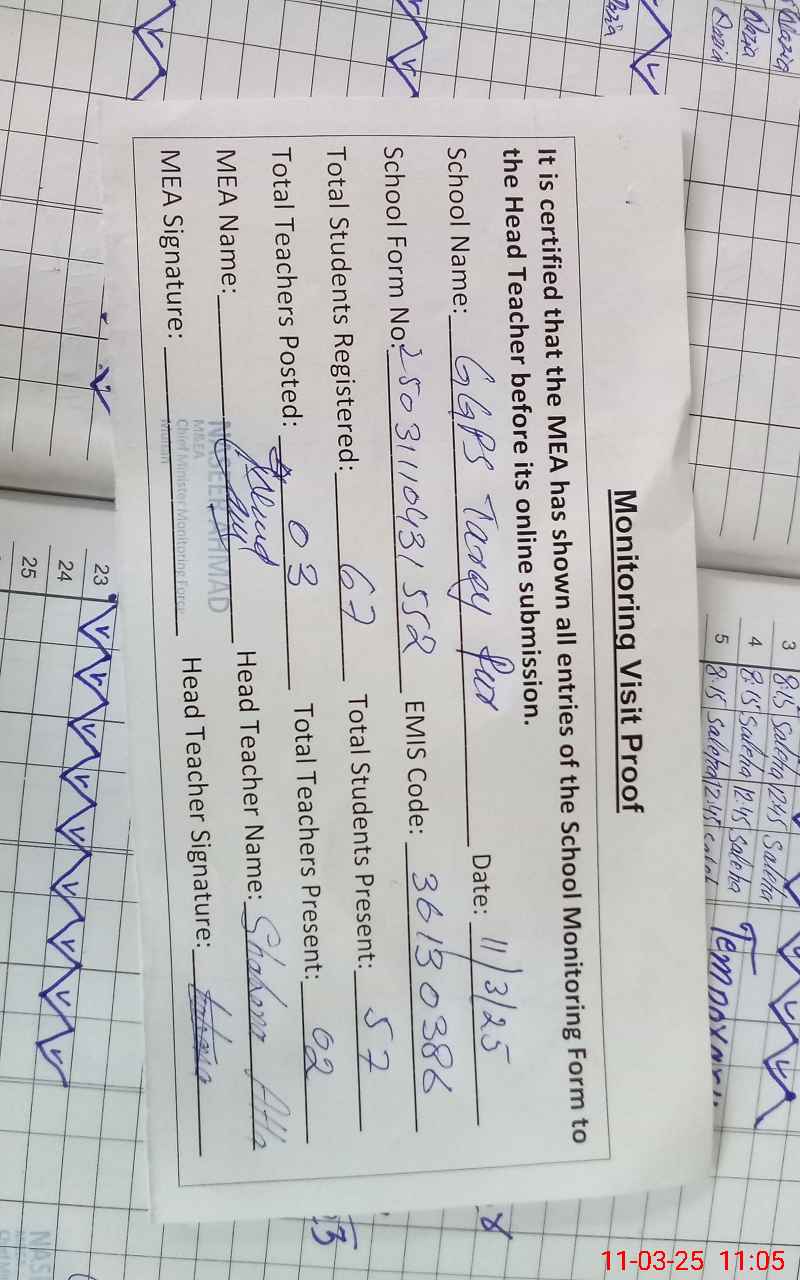 Monitoring Visit Proof
It is certified that the MEA has shown all entries of the School Monitoring Form to
the Head Teacher before its online submission.
School Name: GGPS Taragy Pur Date: 11/3/25
School Form No: 25031110431552 EMIS Code: 36130386
Total Students Registered: 67 Total Students Present: 57
Total Teachers Posted: 03 Total Teachers Present: 02
MEA Name: Head Teacher Name:
NASEER AHMAD
M&EA
Chief Minister Monitoring Force
Multan
MEA Signature: Head Teacher Signature:
3 8:15 Saleha 12:45 Saleha
4 8:15 Saleha 12:45 Saleha
5 8:15 Saleha 12:45
23
24
25
11-03-25 11:05